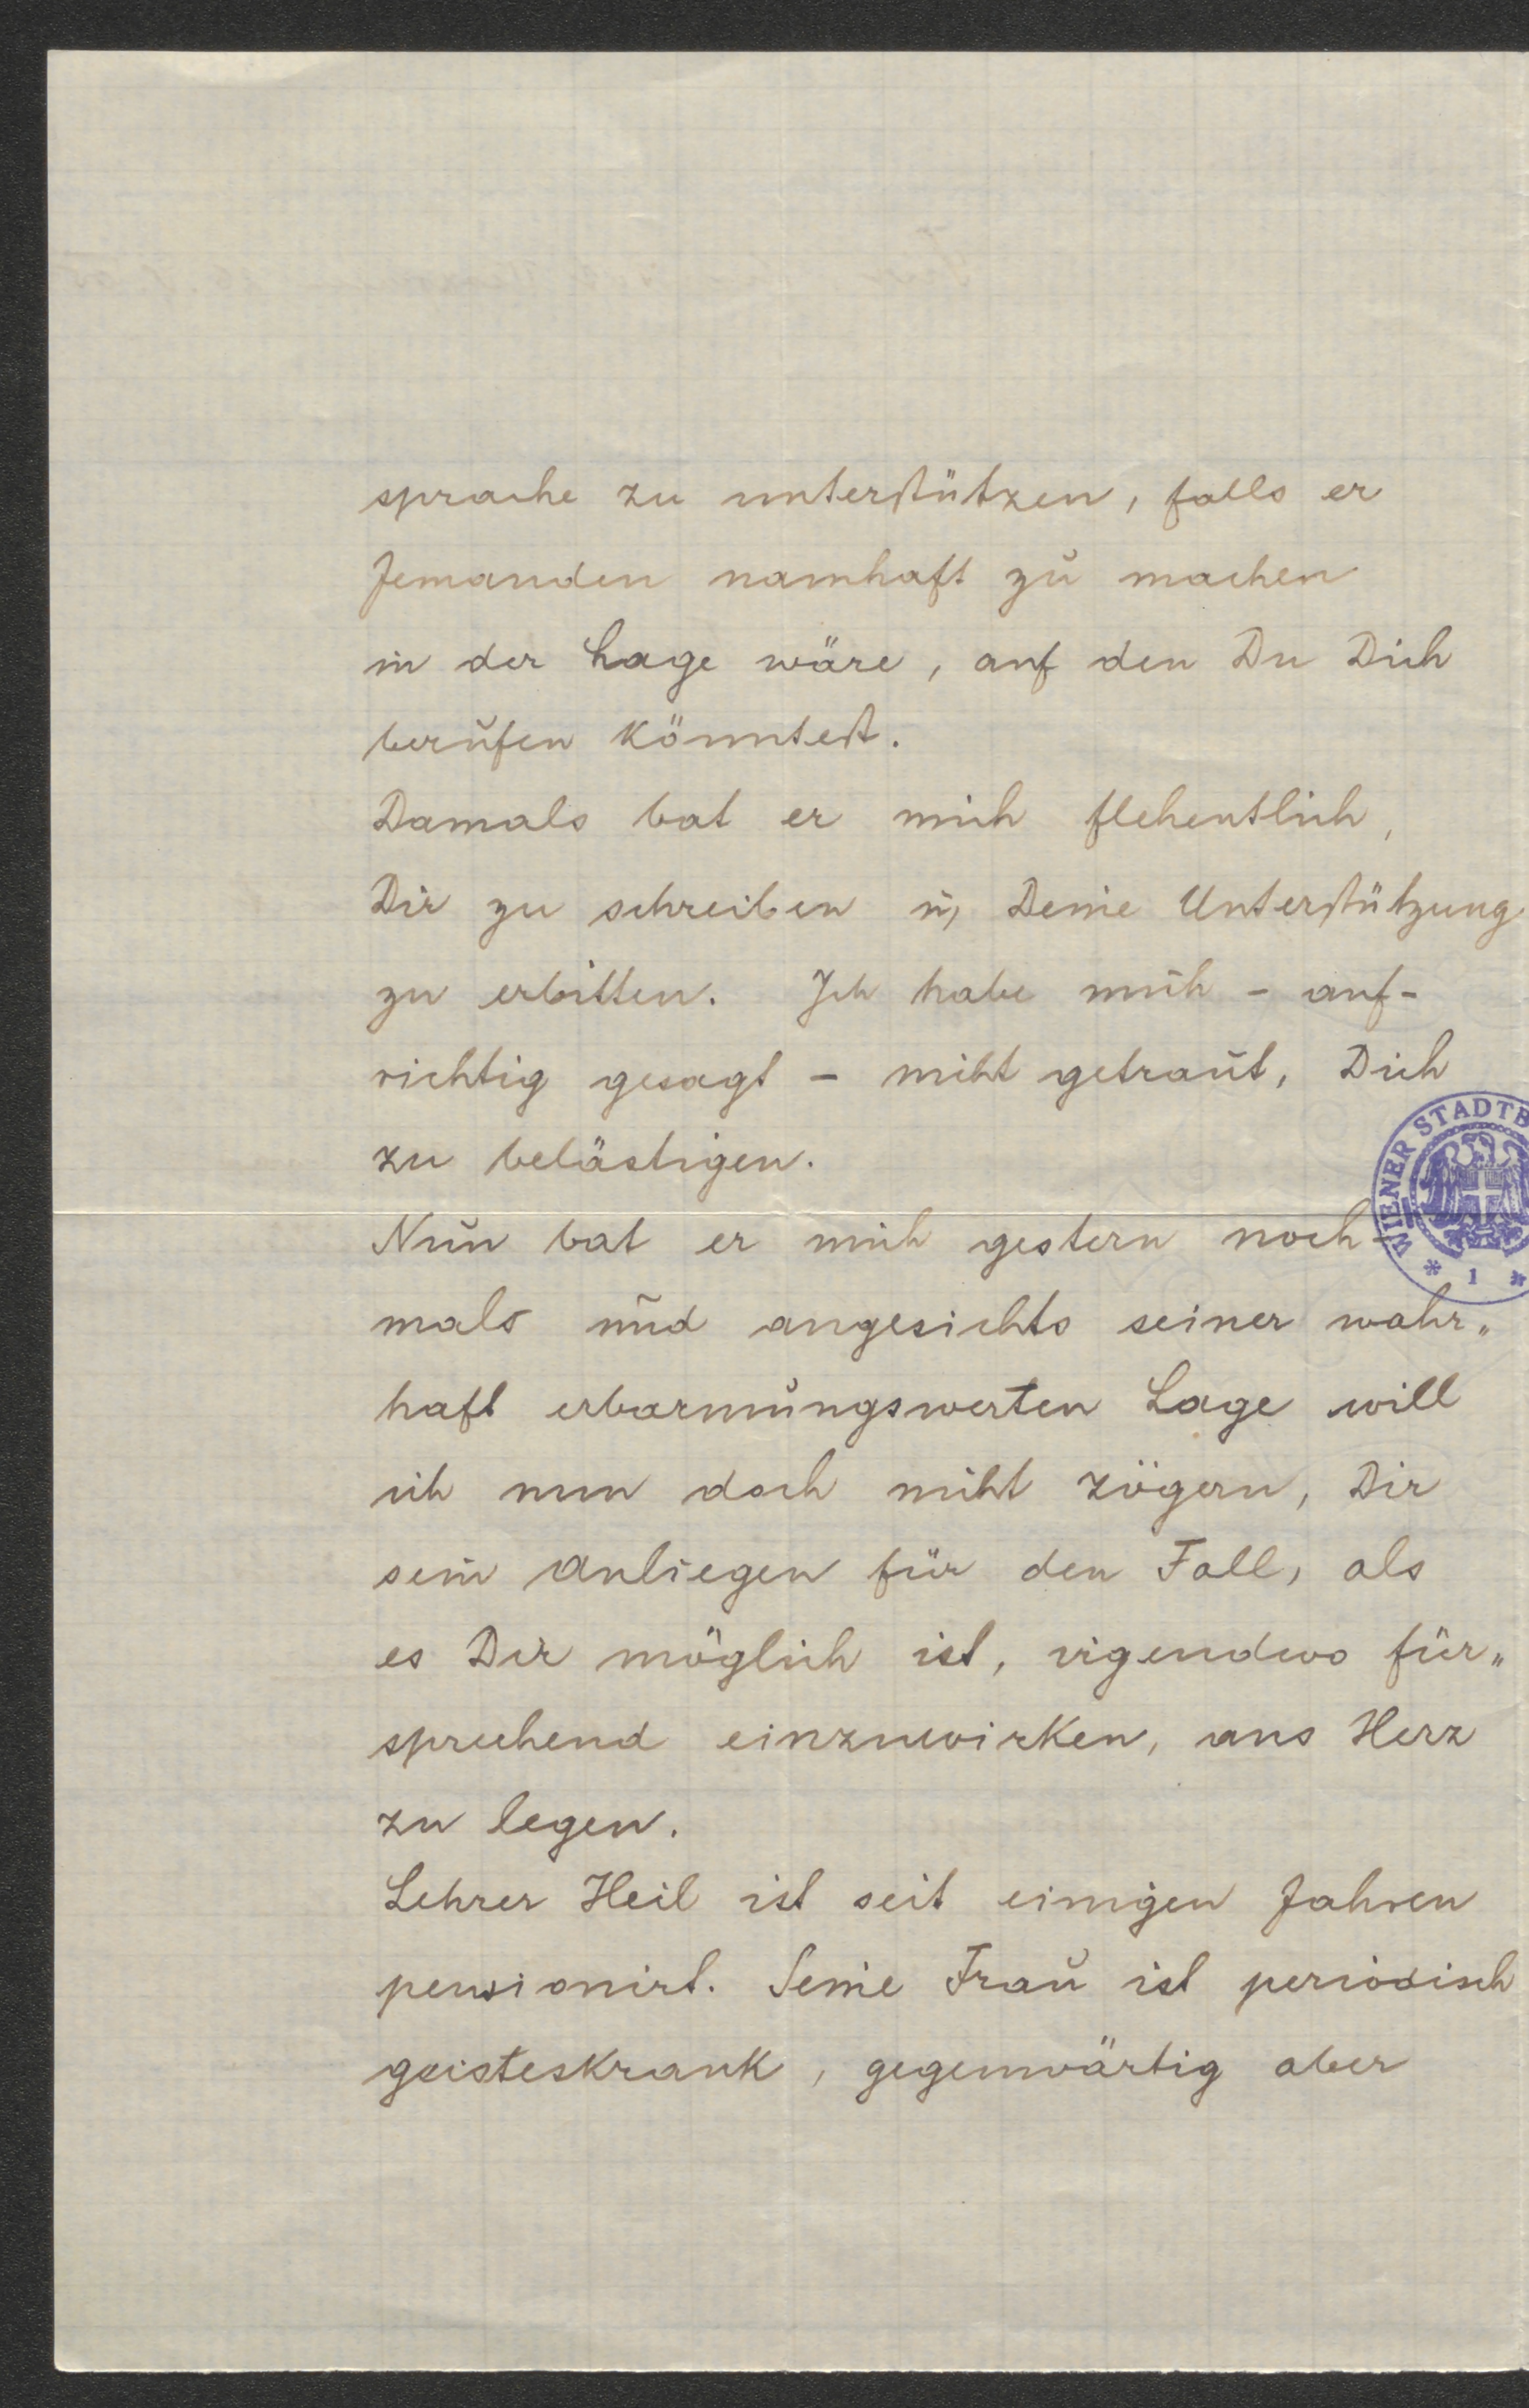 sprache zu unterstützen, falls er
Jemanden namhaft zu machen
in der Lage wäre, auf den Du Dich
berufen könntest.
Damals bat er mich flehentlich,
Dir zu schreiben u, Deine Unterstützung
zu erbitten. Ich habe mich - auf-
richtig gesagt - nicht getraut, Dich
zu belästigen.
Nun bat er mich gestern noch-
mals und angesichts seiner wahr„
haft erbarmungswerten Lage will
ich nun doch nicht zögern, Dir
sein Anliegen für den Fall, als
es Dir möglich ist, irgendwo für„
sprechend einzuwirken, ans Herz
zu legen.
Lehrer Heil ist seit einigen Jahren
pensionirt. Seine Frau ist periodisch
geisteskrank, gegenwärtig aber
WIENER STADTB
* 1 *